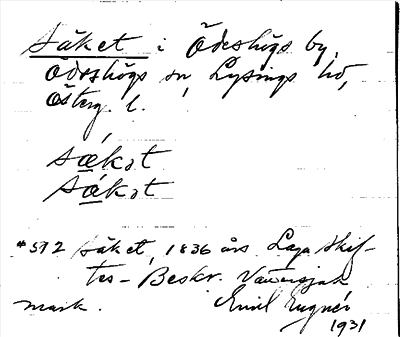 Säket i Ödeshögs by,
Ödeshögs sn, Lysings hd,
Österg. l.
sǽkət
sǽkət
*592 Säket, 1836 års Laga Skif-
tes-Beskr.
mark. Emil Eugnér
1931